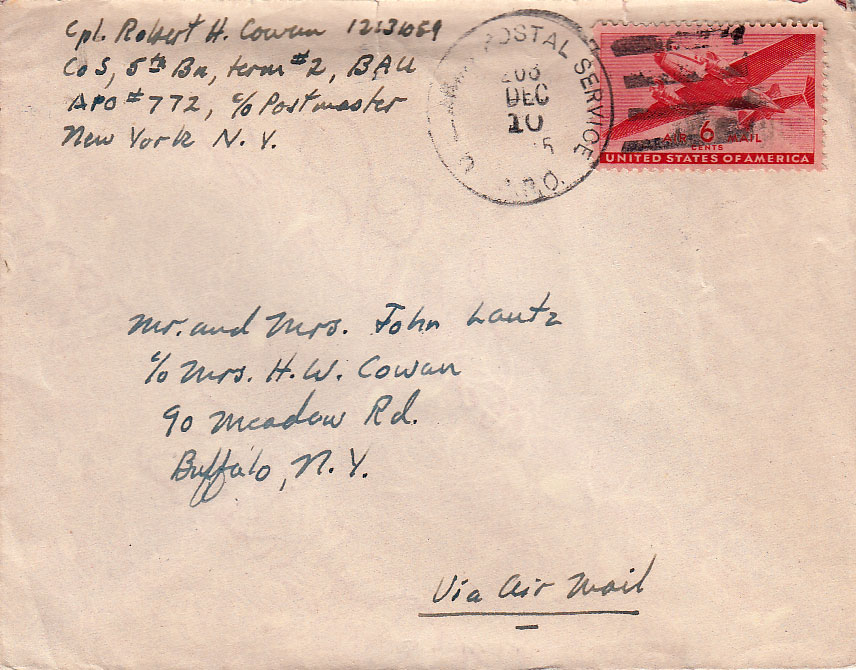 Cpl. Robert H. Cowan 12131059
Co S, 5th Bn, term #2, BAU
APO #772, c/o Postmaster
New York N. Y.
POSTAL SERVICE
DEC
10
5
A.P.O.
AIR 6 MAIL
CENTS
UNITED STATES OF AMERICA
Mr. and Mrs. John Lautz
c/o Mrs. H. W. Cowan
90 Meadow Rd.
Buffalo, N. Y.
Via Air Mail